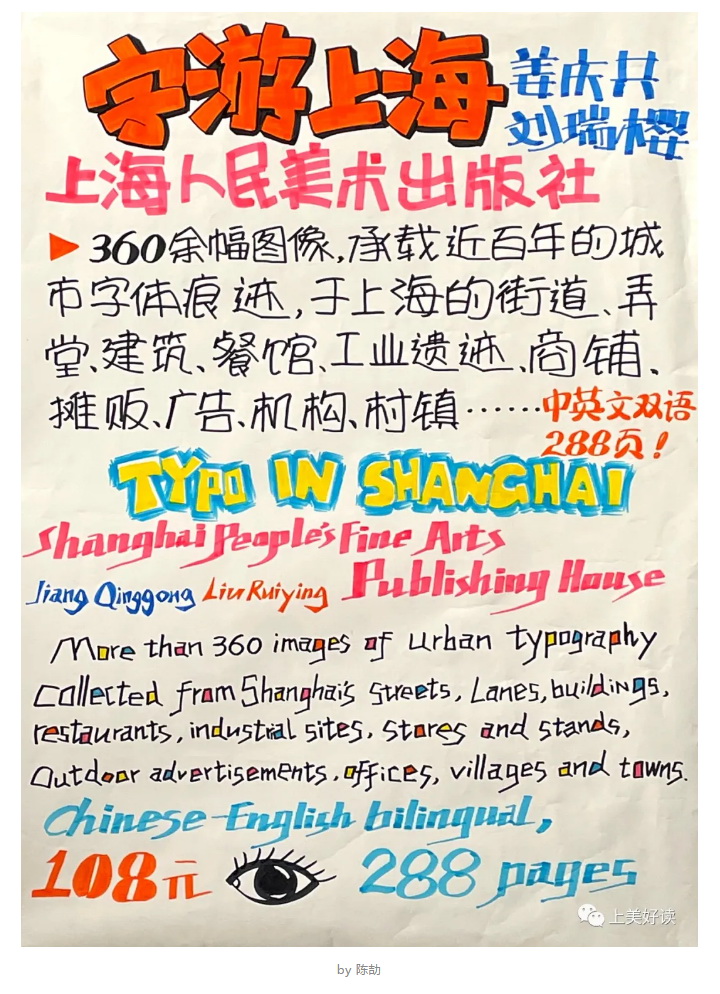 字游上海
姜庆共
刘瑞樱
上海人民美术出版社
▶360余幅图像,承载近百年的城
市字体痕迹,于上海的街道、弄
堂、建筑、餐馆、工业遗迹、商铺、
摊贩、广告、机构、村镇……中英文双语
288页!
TYPO IN SHANGHAI
Shanghai People's Fine Arts
Publishing House
Jiang Qinggong Liu Ruiying
More than 360 images of urban typography
collected from Shanghai's streets, Lanes, buildings,
restaurants, industrial sites, stores and stands,
Outdoor advertisements, offices, villages and towns.
Chinese-English bilingual,
108元 288 pages
上美好读
by 陈劼